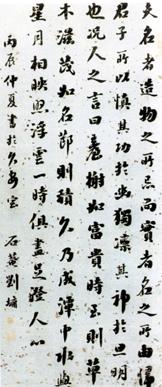 夫名者造物之所忌而實者名之所由
君子所以慎其功於幽獨凛其神於旦明
也况人之言曰臺榭如富貴時至則草
木滋茂如名節則積久乃成潭中水與
星月相映照浮雲一時俱盡是澄人心
丙辰仲夏書於久安室
石菴劉墉